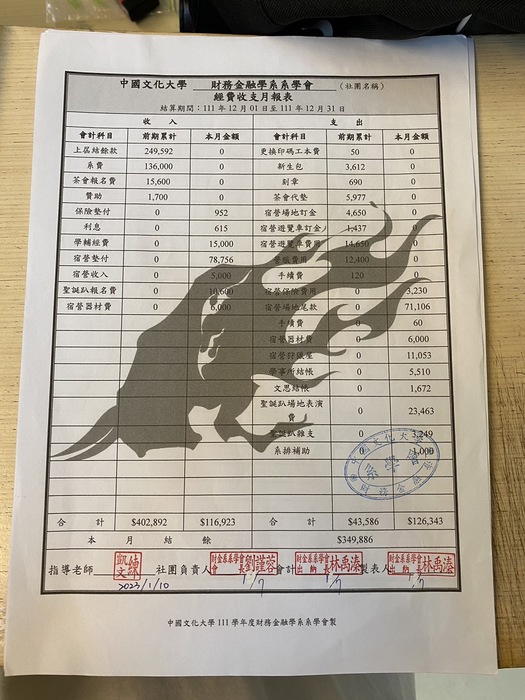 中國文化大學 財務金融學系系學會 （社團名稱）
經費收支月報表
結算期間：111 年 12 月 01 日至 111 年 12 月 31 日
收 入 支 出
會計科目 前期累計 本月金額 會計科目 前期累計 本月金額
上屆結餘款 249,592 0 更換印碼工本費 50 0
系費 136,000 0 新生包 3,612 0
茶會報名費 15,600 0 刻章 690 0
贊助 1,700 0 茶會代墊 5,977 0
保險墊付 0 952 宿營場地訂金 4,650 0
利息 0 615 宿營遊覽車訂金 1,437 0
學輔經費 0 15,000 宿營遊覽車費用 14,650 0
宿營墊付 0 78,756 費用 12,400 0
宿營收入 0 5,000 手續費 120 0
聖誕趴報名費 0 10,600 宿營保險費用 0 3,230
宿營器材費 0 6,000 宿營場地尾款 0 71,106
手續費 0 60
宿營器材費 0 6,000
宿營狩獵屋 0 11,053
學事所結帳 0 5,510
文思結帳 0 1,672
聖誕趴場地表演費 0 23,463
聖誕趴雜支 0 3,249
系排補助 0 1,000
中國文化大學
系學會
財務金融
合 計 $402,892 $116,923 合 計 $43,586 $126,343
本 月 結 餘 $349,886
指導老師 社團負責人 財金系系學會 會長 劉謹蓉 會計 財金系系學會 出納 林禹溱 製表人 財金系系學會 出納 林禹溱
2023/1/10 1/7 1/7 1/7
中國文化大學 111 學年度財務金融學系系學會製